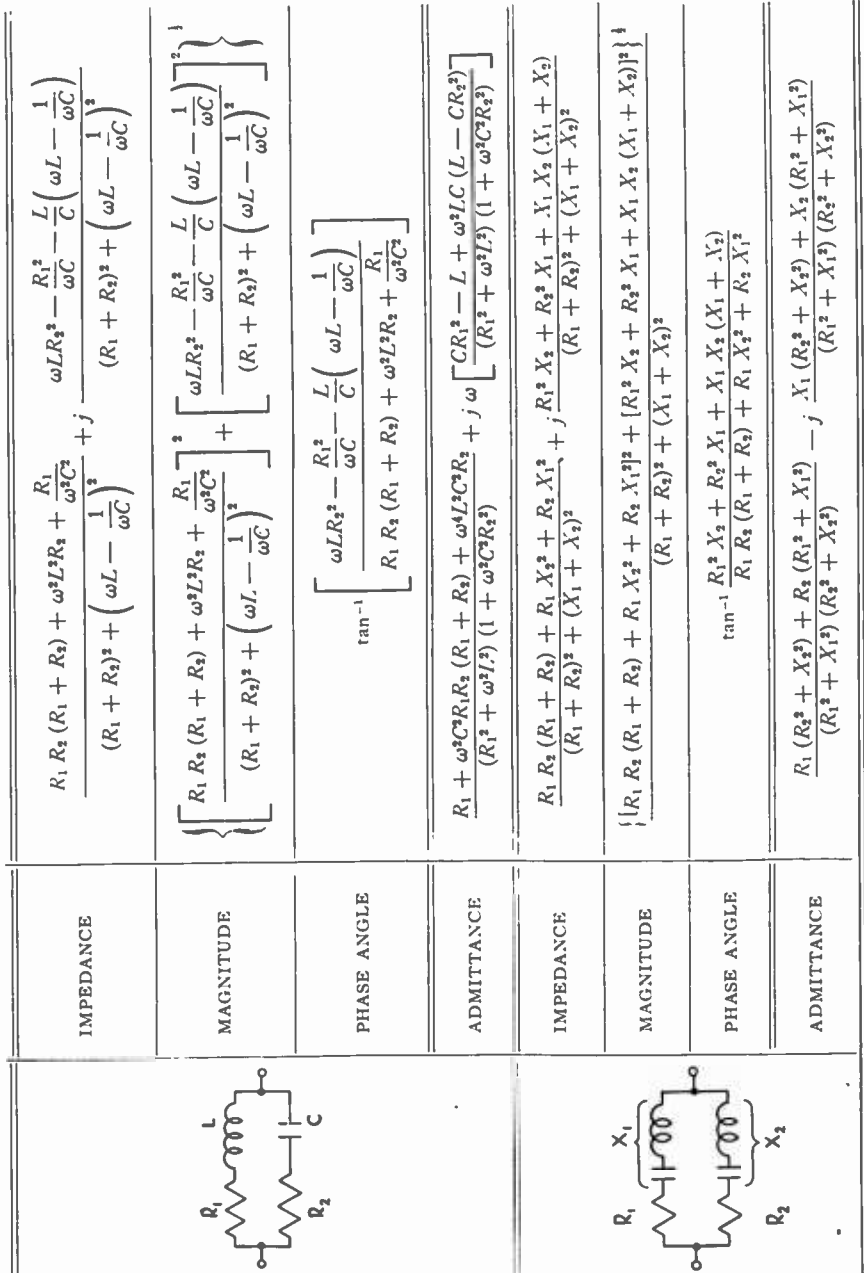 R₁ L
R₂ C
IMPEDANCE
\frac{R_1 R_2 (R_1 + R_2) + \omega^2 L^2 R_2 + \frac{R_1}{\omega^2 C^2}}{(R_1 + R_2)^2 + \left( \omega L - \frac{1}{\omega C} \right)^2} + j \frac{\omega L R_2^2 - \frac{R_1^2}{\omega C} - \frac{L}{C} \left( \omega L - \frac{1}{\omega C} \right)}{(R_1 + R_2)^2 + \left( \omega L - \frac{1}{\omega C} \right)^2}
MAGNITUDE
\left\{ \left[ \frac{R_1 R_2 (R_1 + R_2) + \omega^2 L^2 R_2 + \frac{R_1}{\omega^2 C^2}}{(R_1 + R_2)^2 + \left( \omega L - \frac{1}{\omega C} \right)^2} \right]^2 + \left[ \frac{\omega L R_2^2 - \frac{R_1^2}{\omega C} - \frac{L}{C} \left( \omega L - \frac{1}{\omega C} \right)}{(R_1 + R_2)^2 + \left( \omega L - \frac{1}{\omega C} \right)^2} \right]^2 \right\}^{\frac{1}{2}}
PHASE ANGLE
\tan^{-1} \left[ \frac{\omega L R_2^2 - \frac{R_1^2}{\omega C} - \frac{L}{C} \left( \omega L - \frac{1}{\omega C} \right)}{R_1 R_2 (R_1 + R_2) + \omega^2 L^2 R_2 + \frac{R_1}{\omega^2 C^2}} \right]
ADMITTANCE
\frac{R_1 + \omega^2 C^2 R_1 R_2 (R_1 + R_2) + \omega^4 L^2 C^2 R_2}{(R_1^2 + \omega^2 L^2) (1 + \omega^2 C^2 R_2^2)} + j \omega \left[ \frac{C R_1^2 - L + \omega^2 L C (L - C R_2^2)}{(R_1^2 + \omega^2 L^2) (1 + \omega^2 C^2 R_2^2)} \right]
R₁ X₁
R₂ X₂
IMPEDANCE
\frac{R_1 R_2 (R_1 + R_2) + R_1 X_2^2 + R_2 X_1^2}{(R_1 + R_2)^2 + (X_1 + X_2)^2} + j \frac{R_1^2 X_2 + R_2^2 X_1 + X_1 X_2 (X_1 + X_2)}{(R_1 + R_2)^2 + (X_1 + X_2)^2}
MAGNITUDE
\frac{\{ [R_1 R_2 (R_1 + R_2) + R_1 X_2^2 + R_2 X_1^2]^2 + [R_1^2 X_2 + R_2^2 X_1 + X_1 X_2 (X_1 + X_2)]^2 \}^{\frac{1}{2}}}{(R_1 + R_2)^2 + (X_1 + X_2)^2}
PHASE ANGLE
\tan^{-1} \frac{R_1^2 X_2 + R_2^2 X_1 + X_1 X_2 (X_1 + X_2)}{R_1 R_2 (R_1 + R_2) + R_1 X_2^2 + R_2 X_1^2}
ADMITTANCE
\frac{R_1 (R_2^2 + X_2^2) + R_2 (R_1^2 + X_1^2)}{(R_1^2 + X_1^2) (R_2^2 + X_2^2)} - j \frac{X_1 (R_2^2 + X_2^2) + X_2 (R_1^2 + X_1^2)}{(R_1^2 + X_1^2) (R_2^2 + X_2^2)}